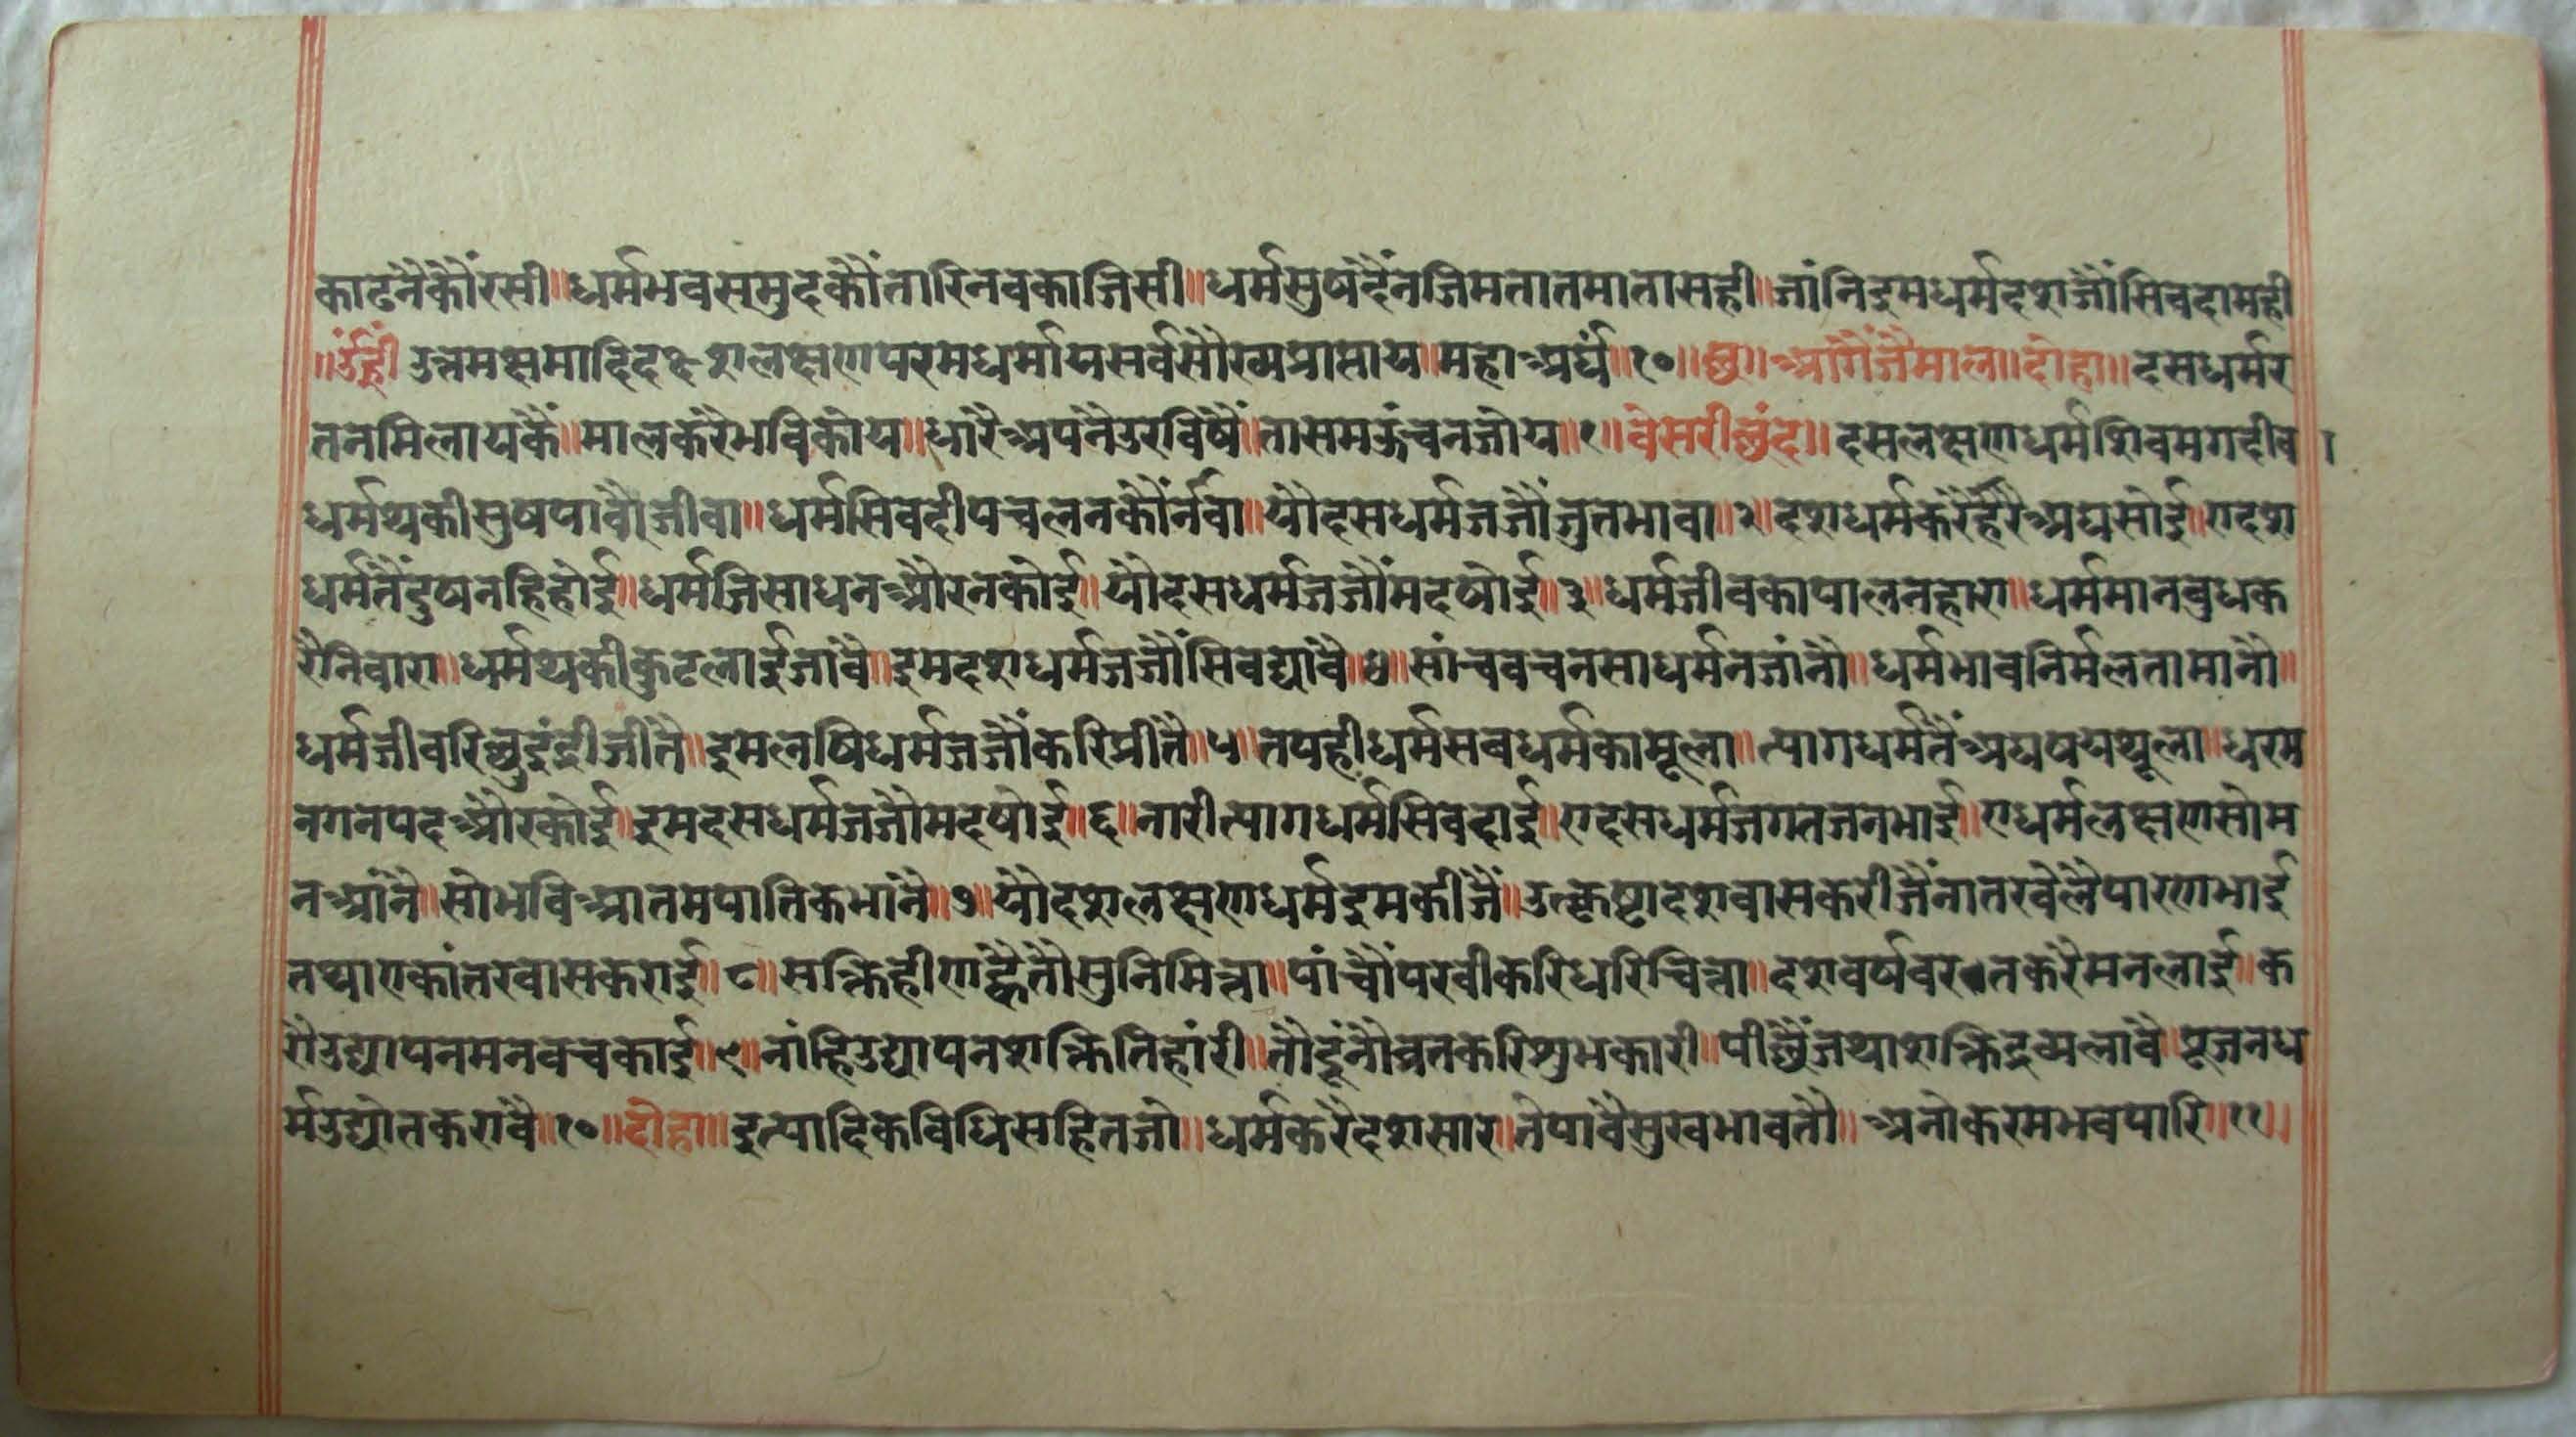 काढनैकौंरसी॥धर्मभवसमुदकौंतारिनवकाजिसी॥धर्मसुषदैंनजिमतातमातासही॥जांनिइमधर्मदशजजौंसिवदामही
॥उंह्रीं उत्तमक्षमादिदशलक्षणपरमधर्मायसर्वसौख्यप्राप्ताय॥महाअर्घं॥१०॥छ॥अागैंजैमाल॥दोहा॥दसधर्मर
तनमिलायकैं॥मालकरैभविकोय॥धारैअपनैउरविषैं॥तासमऊंचनजोय॥१॥वेसरीछंद॥दसलक्षणधर्मशिवमगदीवा
धर्मथकीसुषपावौजीवा॥धर्मसिवदीपचलनकौंनंवा॥यौदसधर्मजजौंजुतभावा॥२॥दशधर्मकरैहरैअघसोई॥एदश
धर्मतैंदुषनहिहोई॥धर्मजिसाधनऔरनकोई॥यौदसधर्मजजौंमदषोई॥३॥धर्मजीवकापालनहारा॥धर्ममानबुधक
रैनिवारा॥धर्मथकीकुटलाईजावै॥इमदशधर्मजजौंसिवद्यांवै॥४॥सांचवचनसाधर्मनजांनौ॥धर्मभावनिर्मलतामांनौ॥
धर्मजीवरिछुइंद्रीजीतै॥इमलषिधर्मजजौंकरिप्रीतै॥५॥तपहीधर्मसबधर्मकामूला॥त्यागधर्मतैंअघषयथूला॥धरम
नगनपदऔरकोई॥इमदसधर्मजजौमदषोई॥६॥नारीत्यागधर्मसिवदाई॥एदसधर्मजगतजनभाई॥एधर्मलक्षणसोम
नआंनै॥सोभविआतमपातिकभांनै॥७॥यौदशलक्षणधर्मइमकीजैं॥उत्कृष्टादशवासकरीजैंनातरबेलैपारणभाई
तथाएकांतरवासकराई॥८॥सक्तिहीणह्वैतौसुनिमित्ता॥पांचौंपरवीकरिधरिचित्ता॥दशवर्षवरतकरैमनलाई॥क
रौउद्यापनमनवचकाई॥९॥नांहिउद्यापनशक्तितिहांरी॥तौदूंनौंव्रतकरिशुभकारी॥पीछैंजथाशक्तिद्रव्यलावै॥पूजनध
र्मउद्योतकरावै॥१०॥दोहा॥इत्यादिकविधिसहितजो॥धर्मकरैदशसार॥तेपावैसुखभावतौ॥अनोकरमभवपारि॥११॥